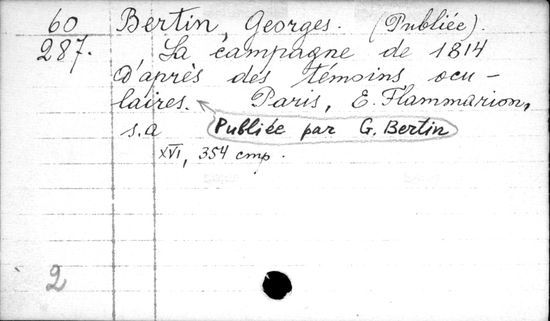 60 Bertin, Georges. (Publiée).
287. La campagne de 1814
d'après des témoins ocu-
laires. Paris, E. Flammarion,
s.a Publiée par G. Bertin
XVI, 354 cmp.
2